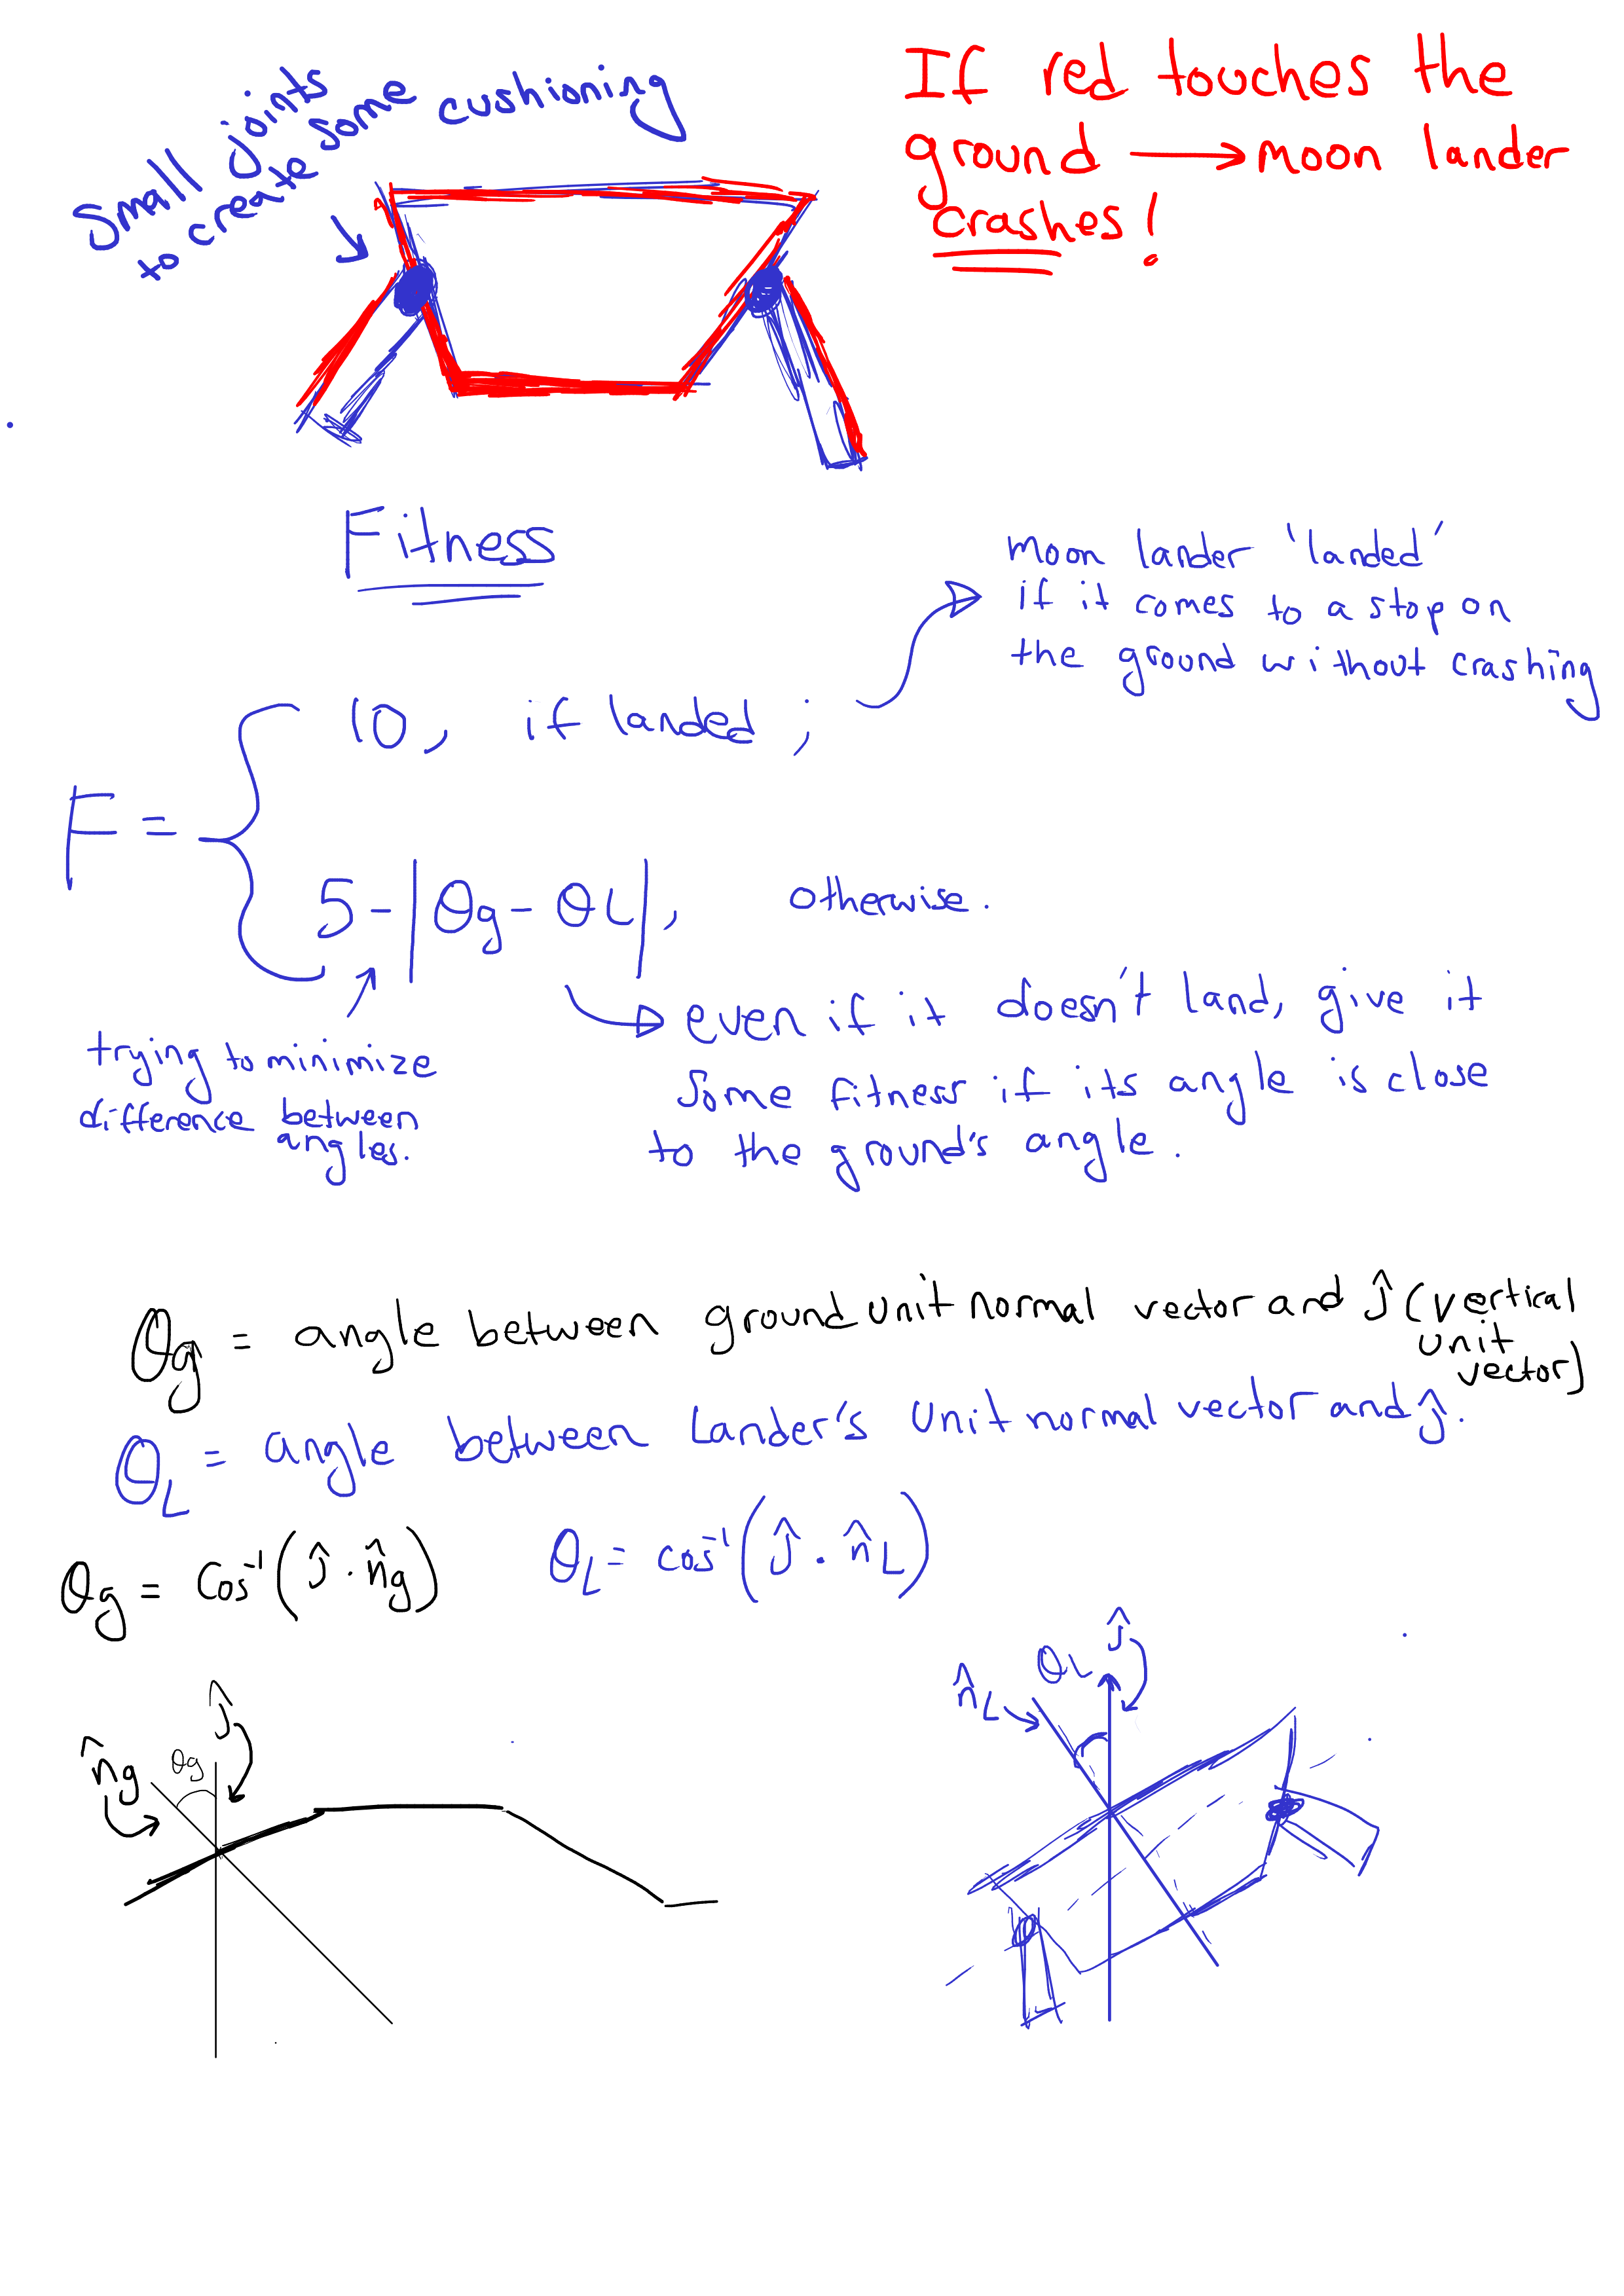 Small joints
to create some cushioning
If red touches the
ground → moon lander
crashes!
Fitness
moon lander 'landed'
if it comes to a stop on
the ground without crashing
F = { 10, if landed ;
5 - |θg - θL|, otherwise.
trying to minimize
difference between
angles.
even if it doesn't land, give it
some fitness if its angle is close
to the ground's angle.
θg = angle between ground unit normal vector and ĵ (vertical
unit
vector)
θL = angle between Lander's unit normal vector and ĵ.
θg = cos⁻¹(ĵ · n̂g)
θL = cos⁻¹(ĵ · n̂L)
n̂g
θg
ĵ
n̂L
θL
ĵ